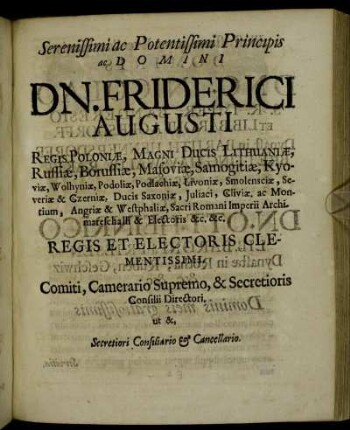 Serenissimi ac Potentissimi Principis
ac DOMINI
DN. FRIDERICI
AUGUSTI
REGIS POLONIÆ, MAGNI DUCIS LITHUANIÆ,
Russiæ, Borussiæ, Masoviæ, Samogitiæ, Kyo-
viæ, Wolhyniæ, Podoliæ, Podlachiæ, Livoniæ, Smolensciæ, Se-
veriæ & Czerniæ, Ducis Saxoniæ, Juliaci, Cliviæ, ac Mon-
tium, Angriæ & Westphaliæ, Sacri Romani Imperii Archi-
mareschalli & Electoris &c. &c.
REGIS ET ELECTORIS CLE-
MENTISSIMI,
Comiti, Camerario Supremo, & Secretioris
Consilii Directori,
ut &,
Secretiori Consiliario & Cancellario.